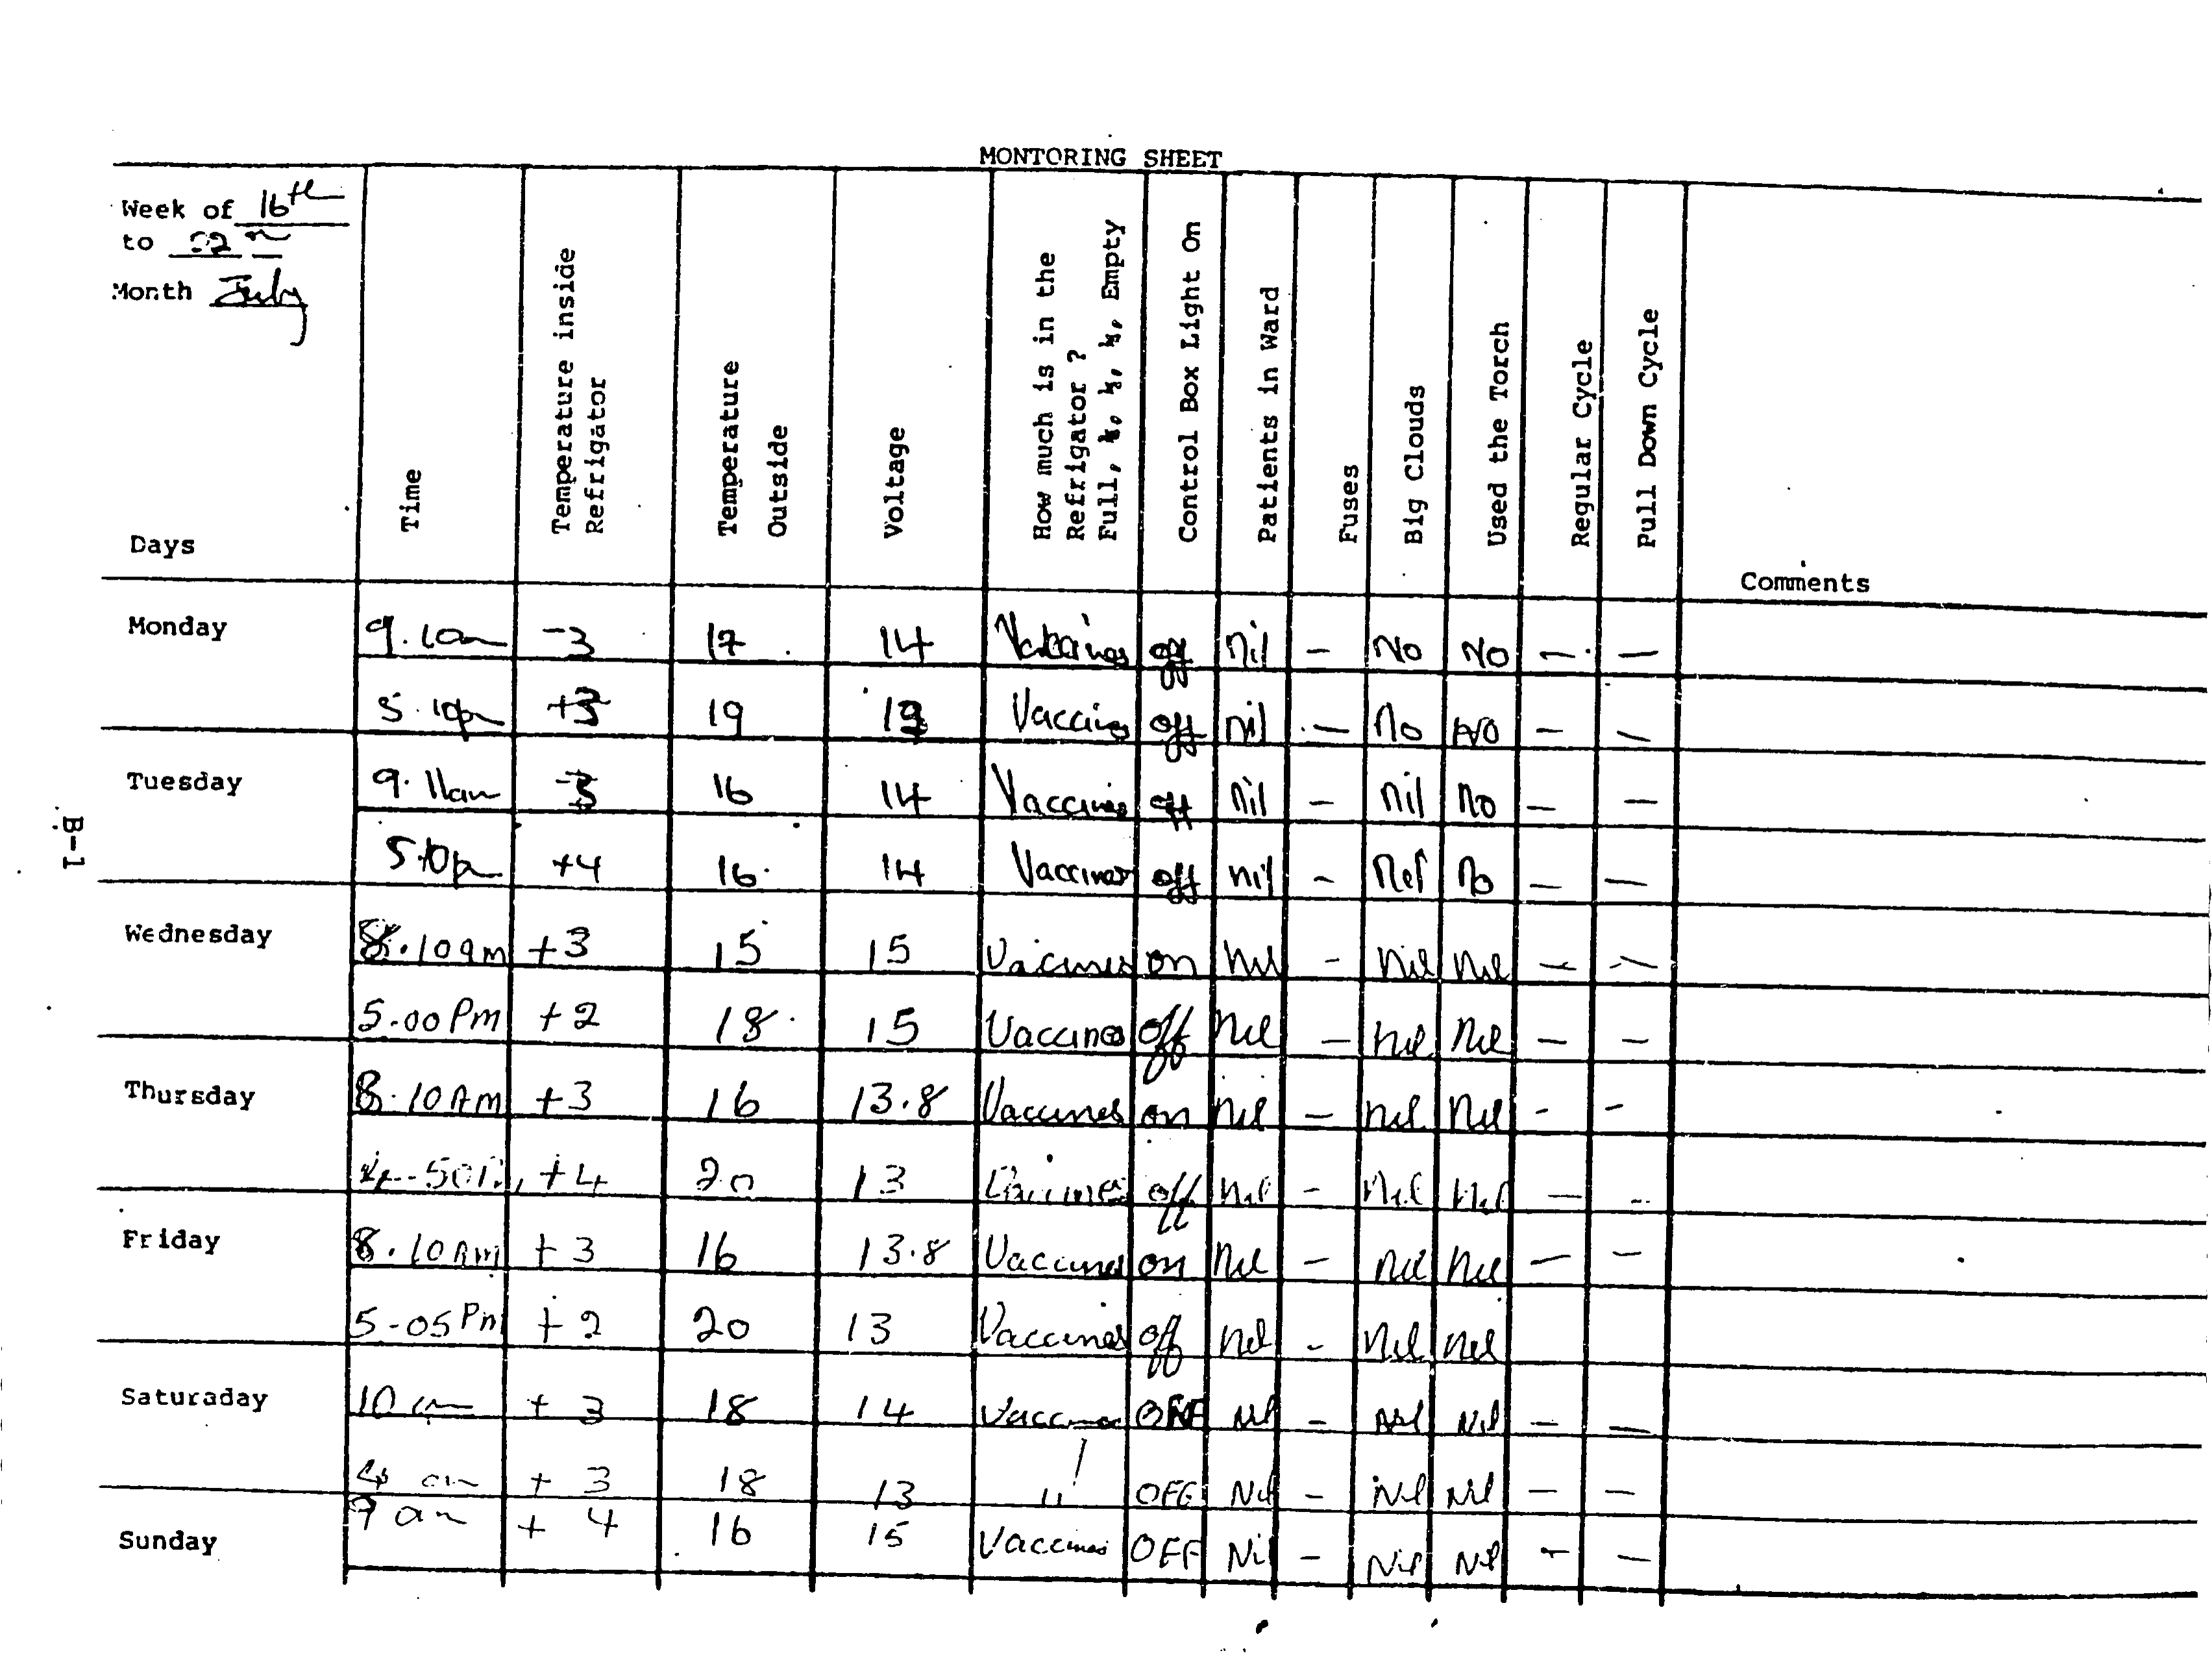 MONTORING SHEET
Week of 16th
to 22n
Month July
Days
Time
Temperature inside
Refrigator
Temperature
Outside
Voltage
How much is in the
Refrigator ?
Full, Empty
Control Box Light On
Patients in Ward
Fuses
Big Clouds
Used the Torch
Regular Cycle
Pull Down Cycle
Comments
Monday 9.10am -3 17 14 off nil — No No — —
5.10pm 19 off nil — No No — —
Tuesday 9.11am 16 14 Vaccines off nil — nil No — —
5.10pm +4 16 14 Vaccines off nil — no — —
Wednesday 8.10am +3 15 15 Vaccines on Nil — Nil Nil — —
5.00 Pm +2 18 15 Vaccines off Nil — Nil Nil — —
Thursday 8.10 Am +3 16 13.8 Vaccines on nil — nil Nil — —
+4 20 13 off Nil — Nil Nil — —
Friday 8.10 Am +3 16 13.8 Vaccines on Nil — nil Nil — —
5-05 Pm +2 20 13 Vaccines off Nil — Nil Nil
Saturaday 10 am + 3 18 14 Vaccines Nil — Nil Nil — —
+ 3 18 13 " OFF Nil — Nil Nil — —
Sunday 9 am + 4 16 15 Vaccines OFF Nil — Nil Nil — —
B-1